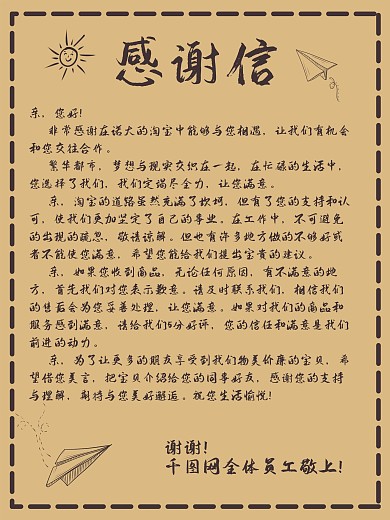 感谢信
亲，您好！
非常感谢在诺大的淘宝中能够与您相遇，让我们有机会
和您交往合作。
繁华都市，梦想与现实交织在一起，在忙碌的生活中，
您选择了我们，我们定竭尽全力，让您满意。
亲，淘宝的道路虽然充满了坎坷，但有了您的支持和认
可，使我们更加坚定了自己的事业。在工作中，不可避免
的出现的疏忽，敬请谅解。但也有许多地方做的不够好或
者不能使您满意，希望您能给我们提出宝贵的建议。
亲，如果您收到商品，无论任何原因，有不满意的地
方，首先我们对您表示歉意。请及时联系我们，相信我们
的售后会为您妥善处理，让您满意。如果对我们的商品和
服务感到满意，请给我们5分好评，您的信任和满意是我们
前进的动力。
亲，为了让更多的朋友享受到我们物美价廉的宝贝，希
望借您美言，把宝贝介绍给您的同事好友，感谢您的支持
与理解，期待与您美好邂逅。祝您生活愉悦！
谢谢！
千图网全体员工敬上！